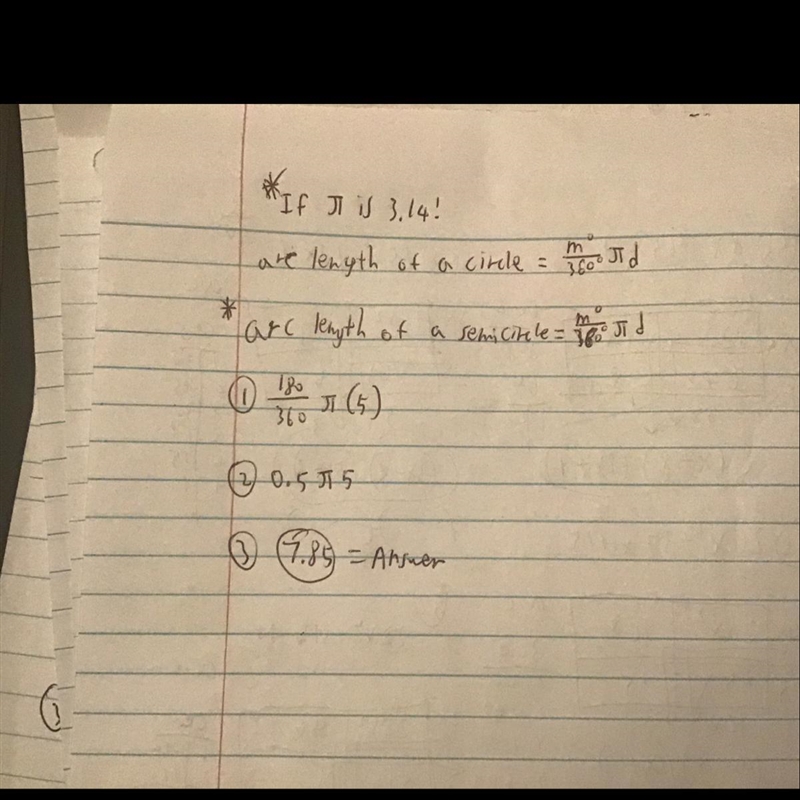 *If π is 3.14!
arc length of a circle = m°/360° πd
* arc length of a semicircle = m°/360° πd
① 180/360 π(5)
② 0.5 π 5
③ 7.85 = Answer
③